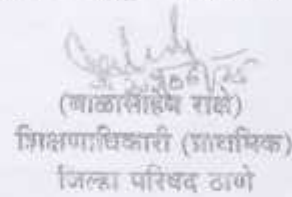 (बाळासाहेब राक्षे)
शिक्षणाधिकारी (प्राथमिक)
जिल्हा परिषद ठाणे